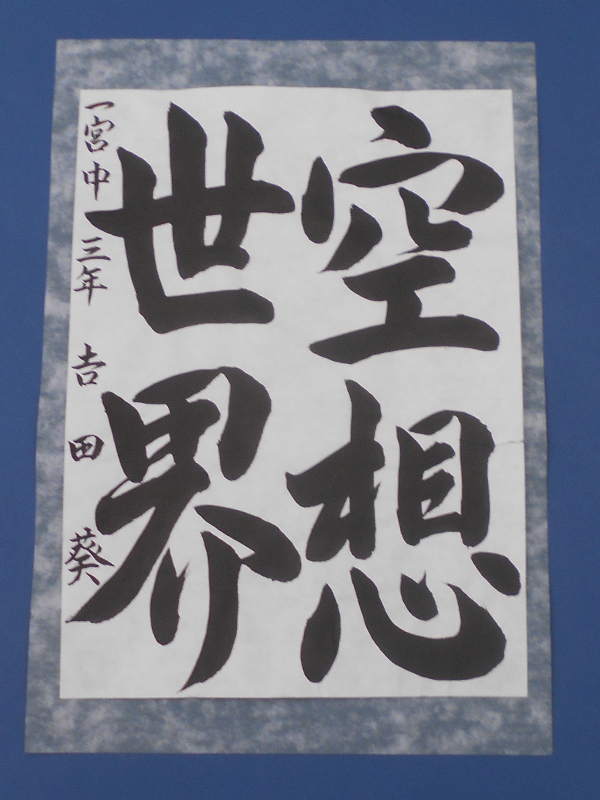 空想
世界
一宮中 三年 吉田 葵